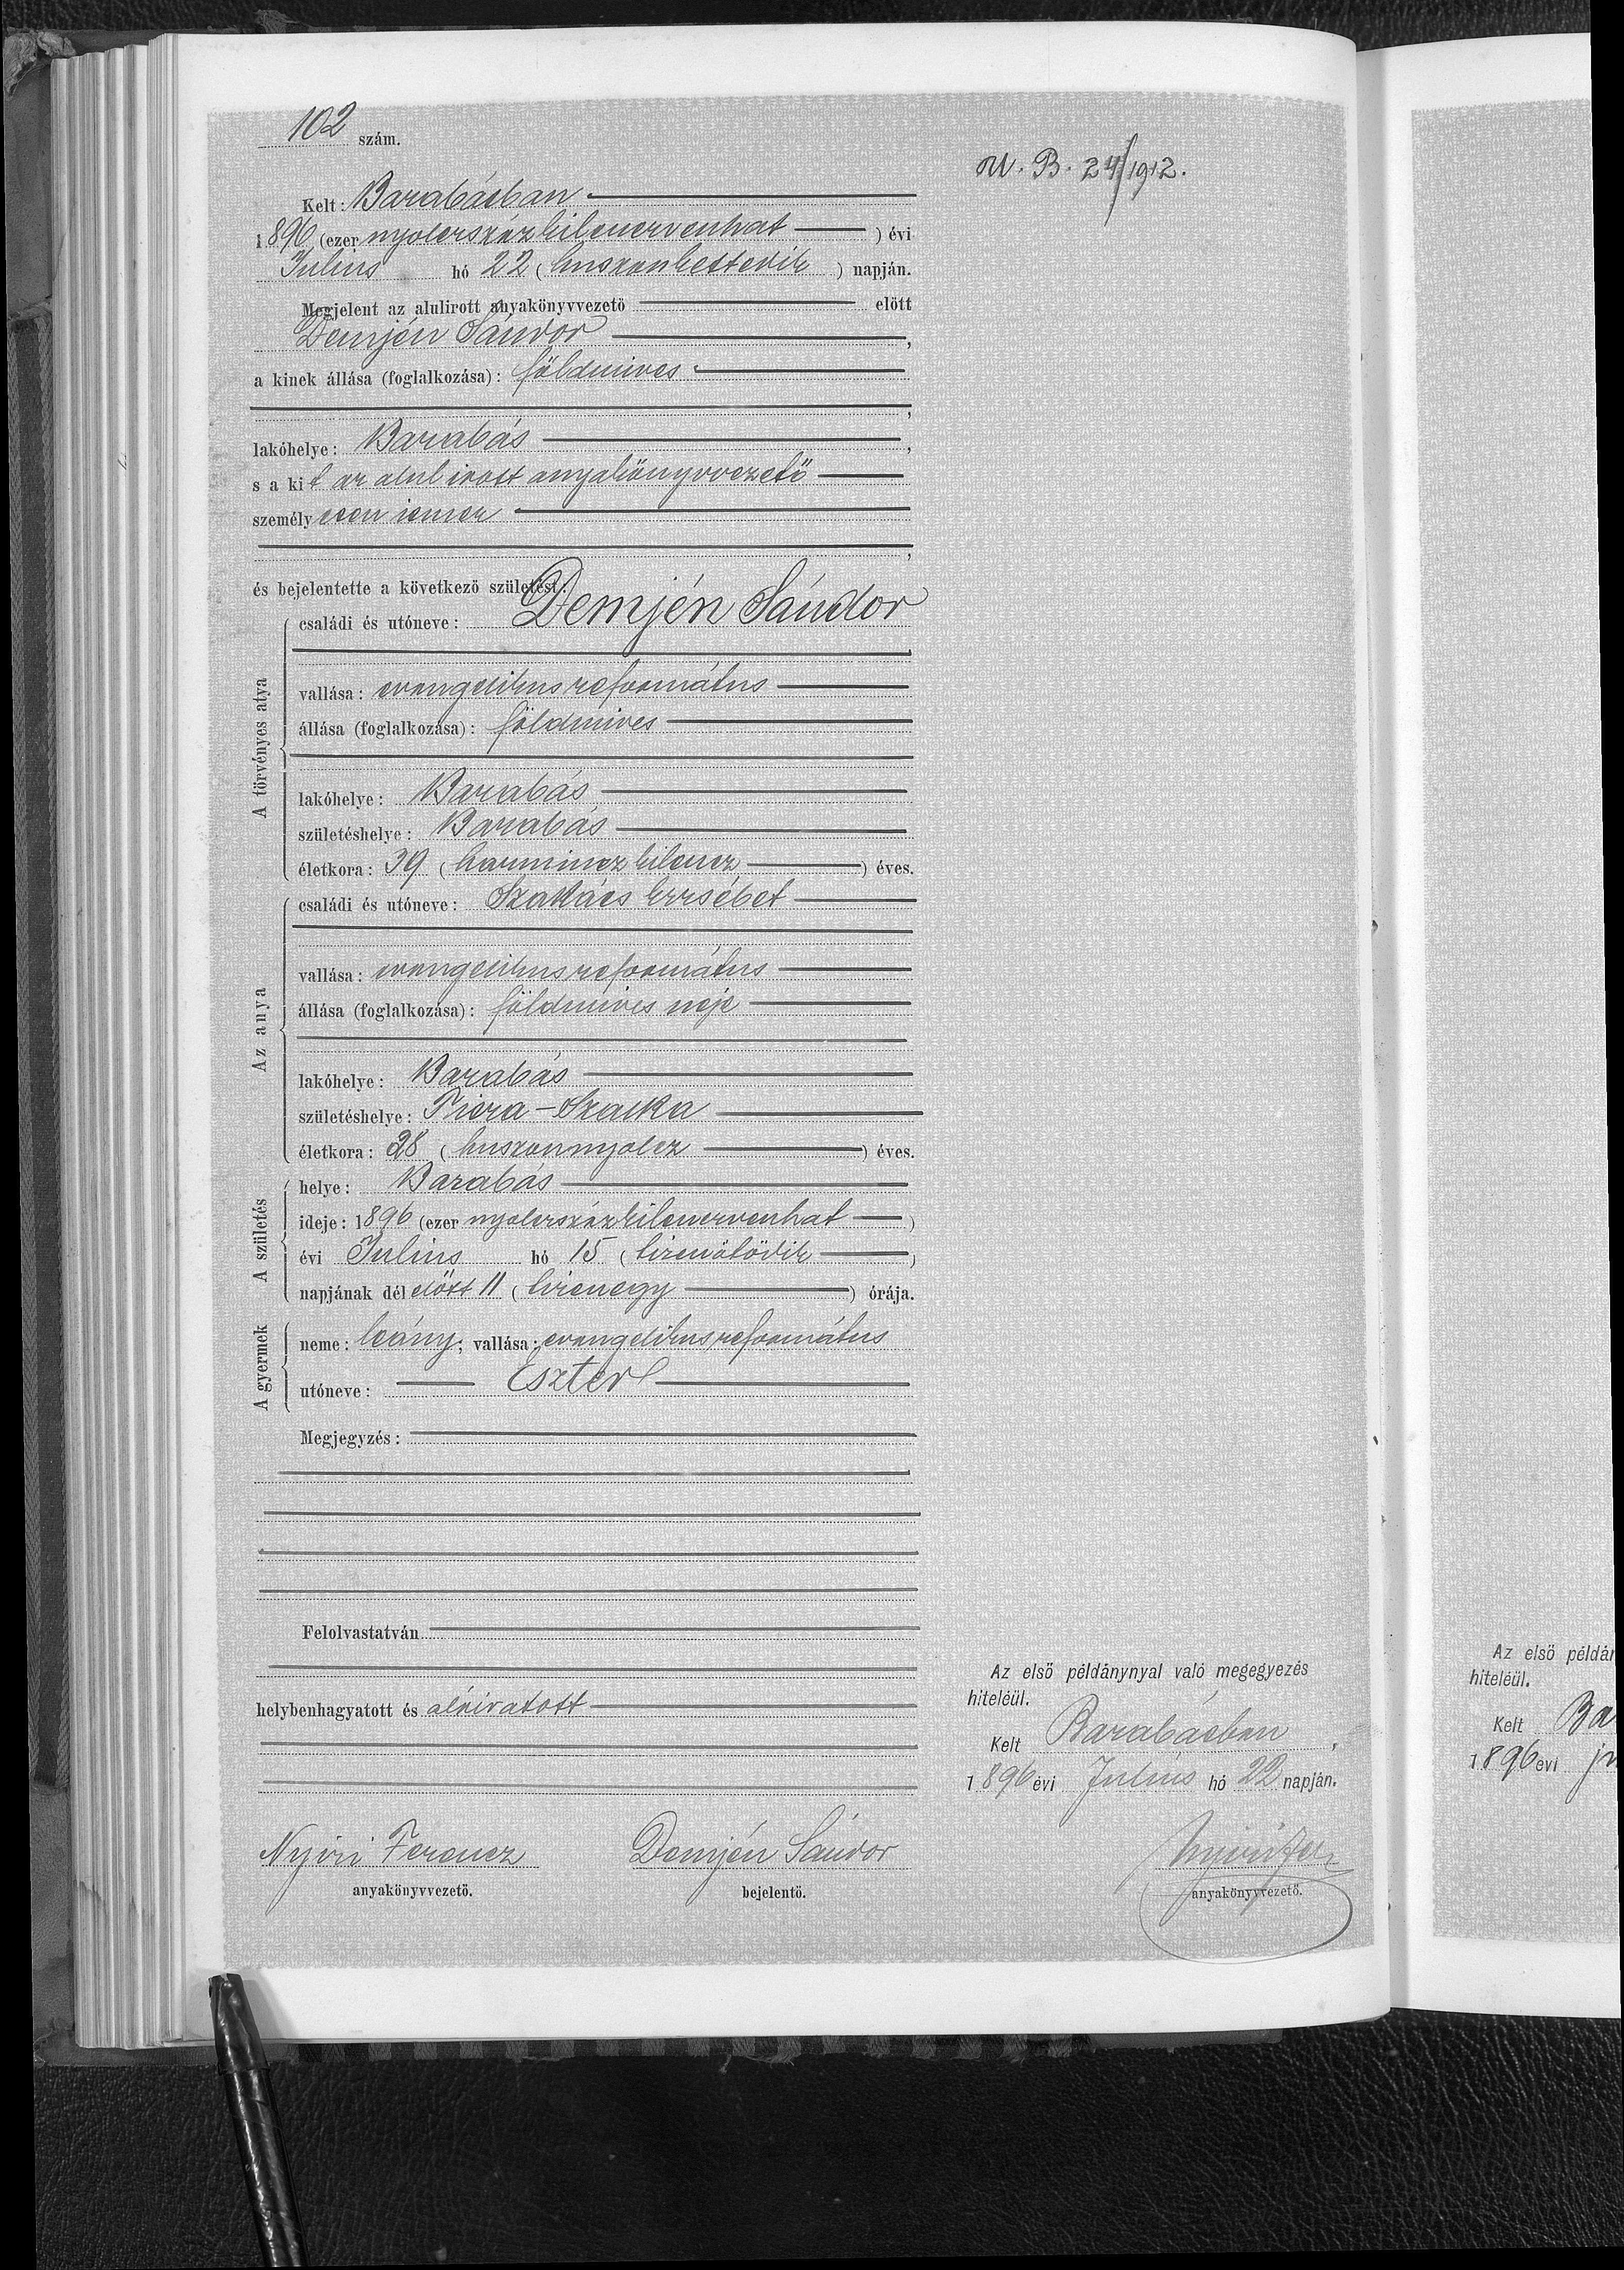 102 szám.
M. B. 24/1912.
Kelt: Barabásban
1896 (ezer nyolczszázkilenczvenhat) évi
Julius hó 22 (huszonkettedik) napján.
Megjelent az alulirott anyakönyvvezető előtt
Demjén Sándor,
a kinek állása (foglalkozása): földmives
,
lakóhelye: Barabás,
s a kit az alulirott anyakönyvvezető
személyesen ismer
,
és bejelentette a következő születést:
A törvényes atya
családi és utóneve: Demjén Sándor
vallása: evangelikus református
állása (foglalkozása): földmives
lakóhelye: Barabás
születéshelye: Barabás
életkora: 39 (harminczkilencz) éves.
Az anya
családi és utóneve: Szakács Erzsébet
vallása: evangelikus református
állása (foglalkozása): földmives neje
lakóhelye: Barabás
születéshelye: Tisza-Szalka
életkora: 28 (huszonnyolcz) éves.
A születés
helye: Barabás
ideje: 1896 (ezer nyolczszázkilenczvenhat)
évi Julius hó 15 (tizenötödik)
napjának délelőtt 11 (tizenegy) órája.
A gyermek
neme: leány; vallása: evangelikus református
utóneve: Eszter
Megjegyzés:
Felolvastatván
helybenhagyatott és aláiratott
Nyíri Ferencz
anyakönyvvezető.
Demjén Sándor
bejelentő.
Az első példánynyal való megegyezés
hiteléül.
Kelt Barabásban,
1896 évi Julius hó 22 napján.
anyakönyvvezető.
Az első példán
hiteléül.
Kelt Ba
1896 évi ju